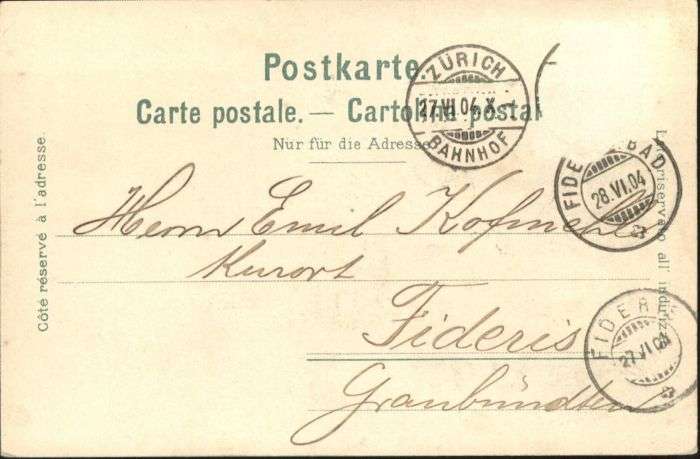 Postkarte
Carte postale. — Cartolina postal
Nur für die Adresse
Côté réservé à l'adresse.
Lato riservato all' indirizzo
ZÜRICH
27.VI.04.X–
BAHNHOF
BAD
28.VI.04
27.VI.04
Herrn Emil Kofmehl
Kurort
Fideris
Graubündten